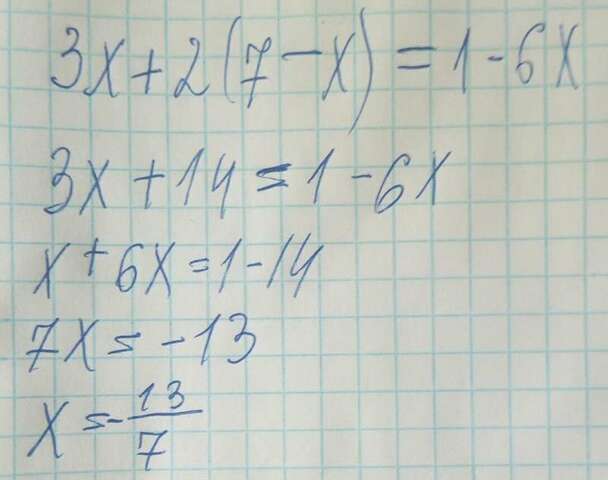 3x+2(7-x)=1-6x
3x+14=1-6x
x+6x=1-14
7x=-13
x=-13/7